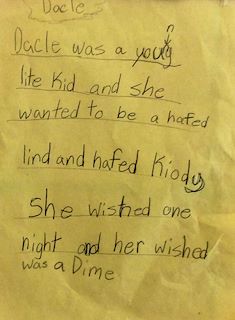 Dacle
Dacle was a young
lite Kid and she
wanted to be a hafed
lind and hafed Kiody
She wished one
night and her wished
was a Dime